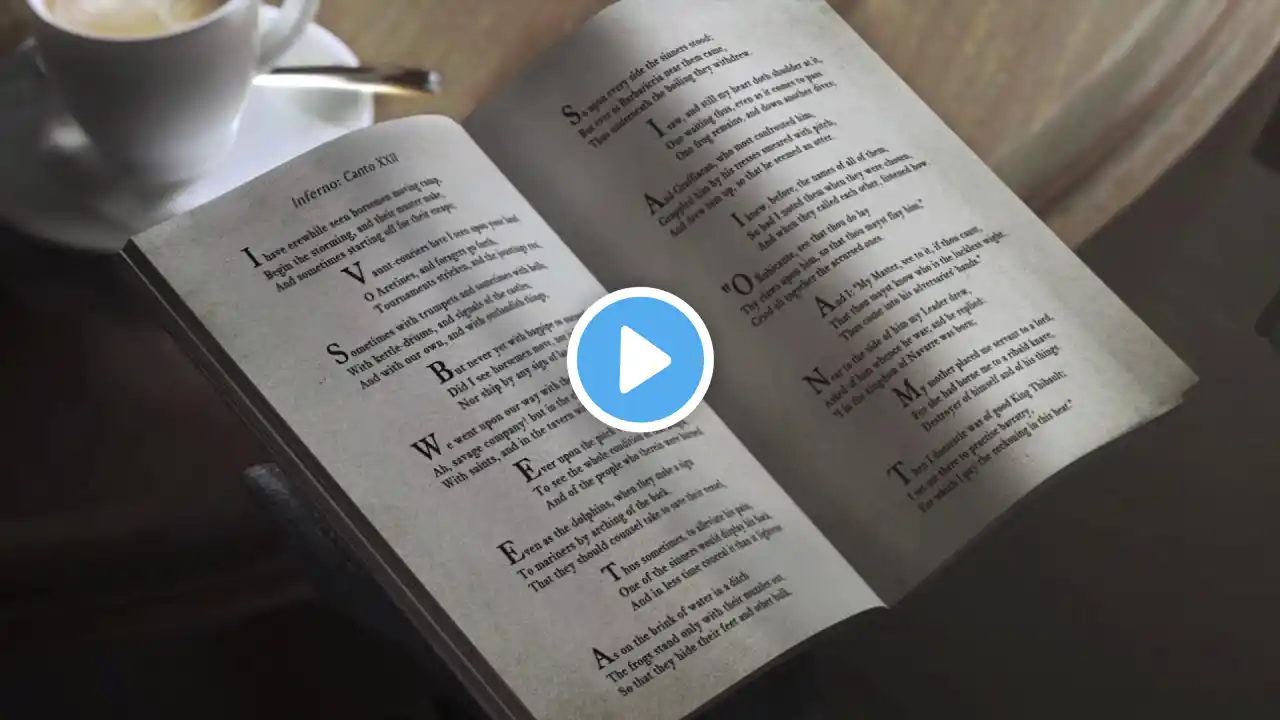 Inferno: Canto XXII
I have erewhile seen horsemen moving camp,
Begin the storming, and their muster make,
And sometimes starting off for their escape;
Vaunt-couriers have I seen upon your land,
O Aretines, and foragers go forth,
Tournaments stricken, and the joustings run,
Sometimes with trumpets and sometimes with bells,
With kettle-drums, and signals of the castles,
And with our own, and with outlandish things,
But never yet with bagpipe so
Did I see horsemen move,
Nor ship by any sign of
We went upon our way with the
Ah, savage company! but in the
With saints, and in the tavern
Ever upon the pitch
To see the whole condition
And of the people who therein were burned
Even as the dolphins, when they make a sign
To mariners by arching of the back,
That they should counsel take to save their vessel,
Thus sometimes, to alleviate his pain,
One of the sinners would display his back,
And in less time conceal it than it lightens
As on the brink of water in a ditch
The frogs stand only with their muzzles out,
So that they hide their feet and other bulk,
So upon every side the sinners stood;
But ever as Barbariccia near them came,
Thus underneath the boiling they withdrew.
I saw, and still my heart doth shudder at it,
One waiting thus, even as it comes to pass
One frog remains, and down another dives;
And Graffiacan, who most confronted him,
Grappled him by his tresses smeared with pitch,
And drew him up, so that he seemed an otter.
I knew, before, the names of all of them,
So had I noted them when they were chosen,
And when they called each other, listened how.
"O Rubicante, see that thou do lay
Thy claws upon him, so that thou mayst flay him,"
Cried all together the accursed ones.
And I: "My Master, see to it, if thou canst,
That thou mayst know who is the luckless wight,
Thus come into his adversaries' hands."
Near to the side of him my Leader drew,
Asked of him whence he was; and he replied:
"I in the kingdom of Navarre was born;
My mother placed me servant to a lord,
For she had borne me to a ribald knave,
Destroyer of himself and of his things.
Then I domestic was of good King Thibault;
I set me there to practise barratry,
For which I pay the reckoning in this heat."